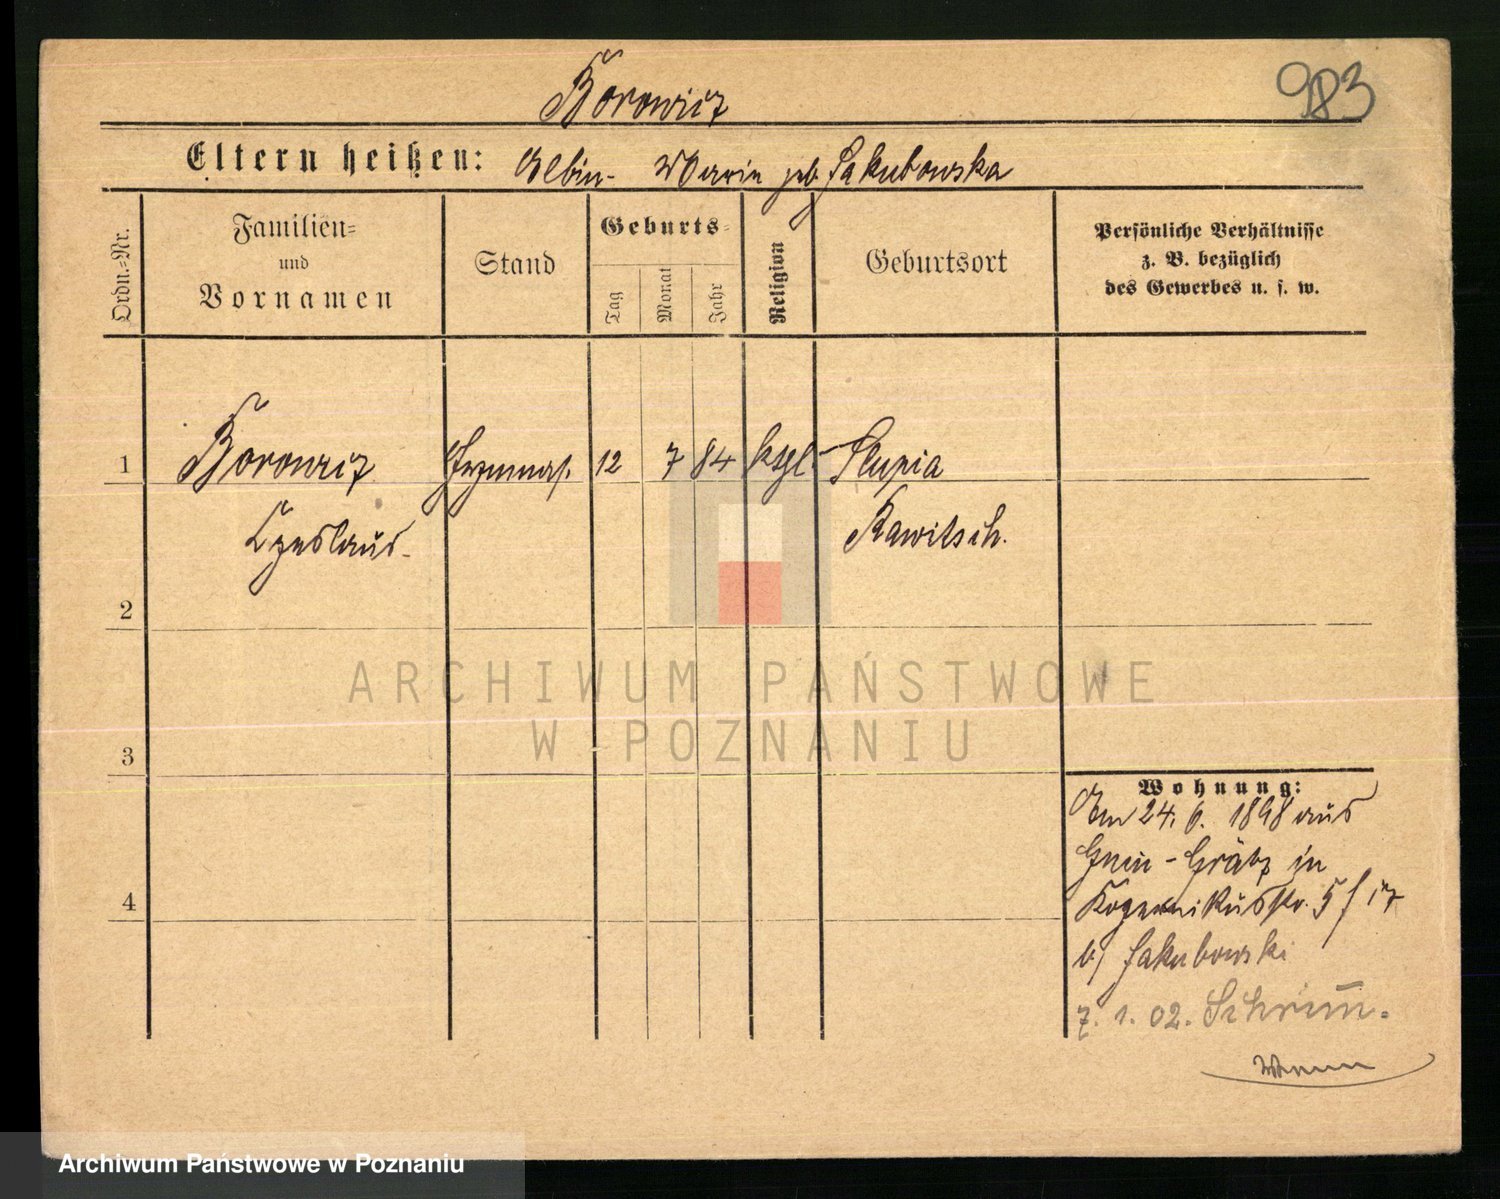 Borowicz
983
Eltern heißen: Albin - Maria geb. Jakubowska
Ordn.-Nr.
Familien- und Vornamen
Stand
Geburts-
Tag
Monat
Jahr
Religion
Geburtsort
Persönliche Verhältnisse
z. B. bezüglich
des Gewerbes u. s. w.
1 Borowicz Gymnas. 12 7 84 ktgl. Slupia
Czeslaus. Rawitsch.
2
3
4
ARCHIWUM PAŃSTWOWE
W POZNANIU
Wohnung:
Am 24. 6. 1898 aus
Gnin - Grätz in
Kopernikusstr. 5
b/ Jakubowski
7. 1. 02. Schrim̄.
Archiwum Państwowe w Poznaniu